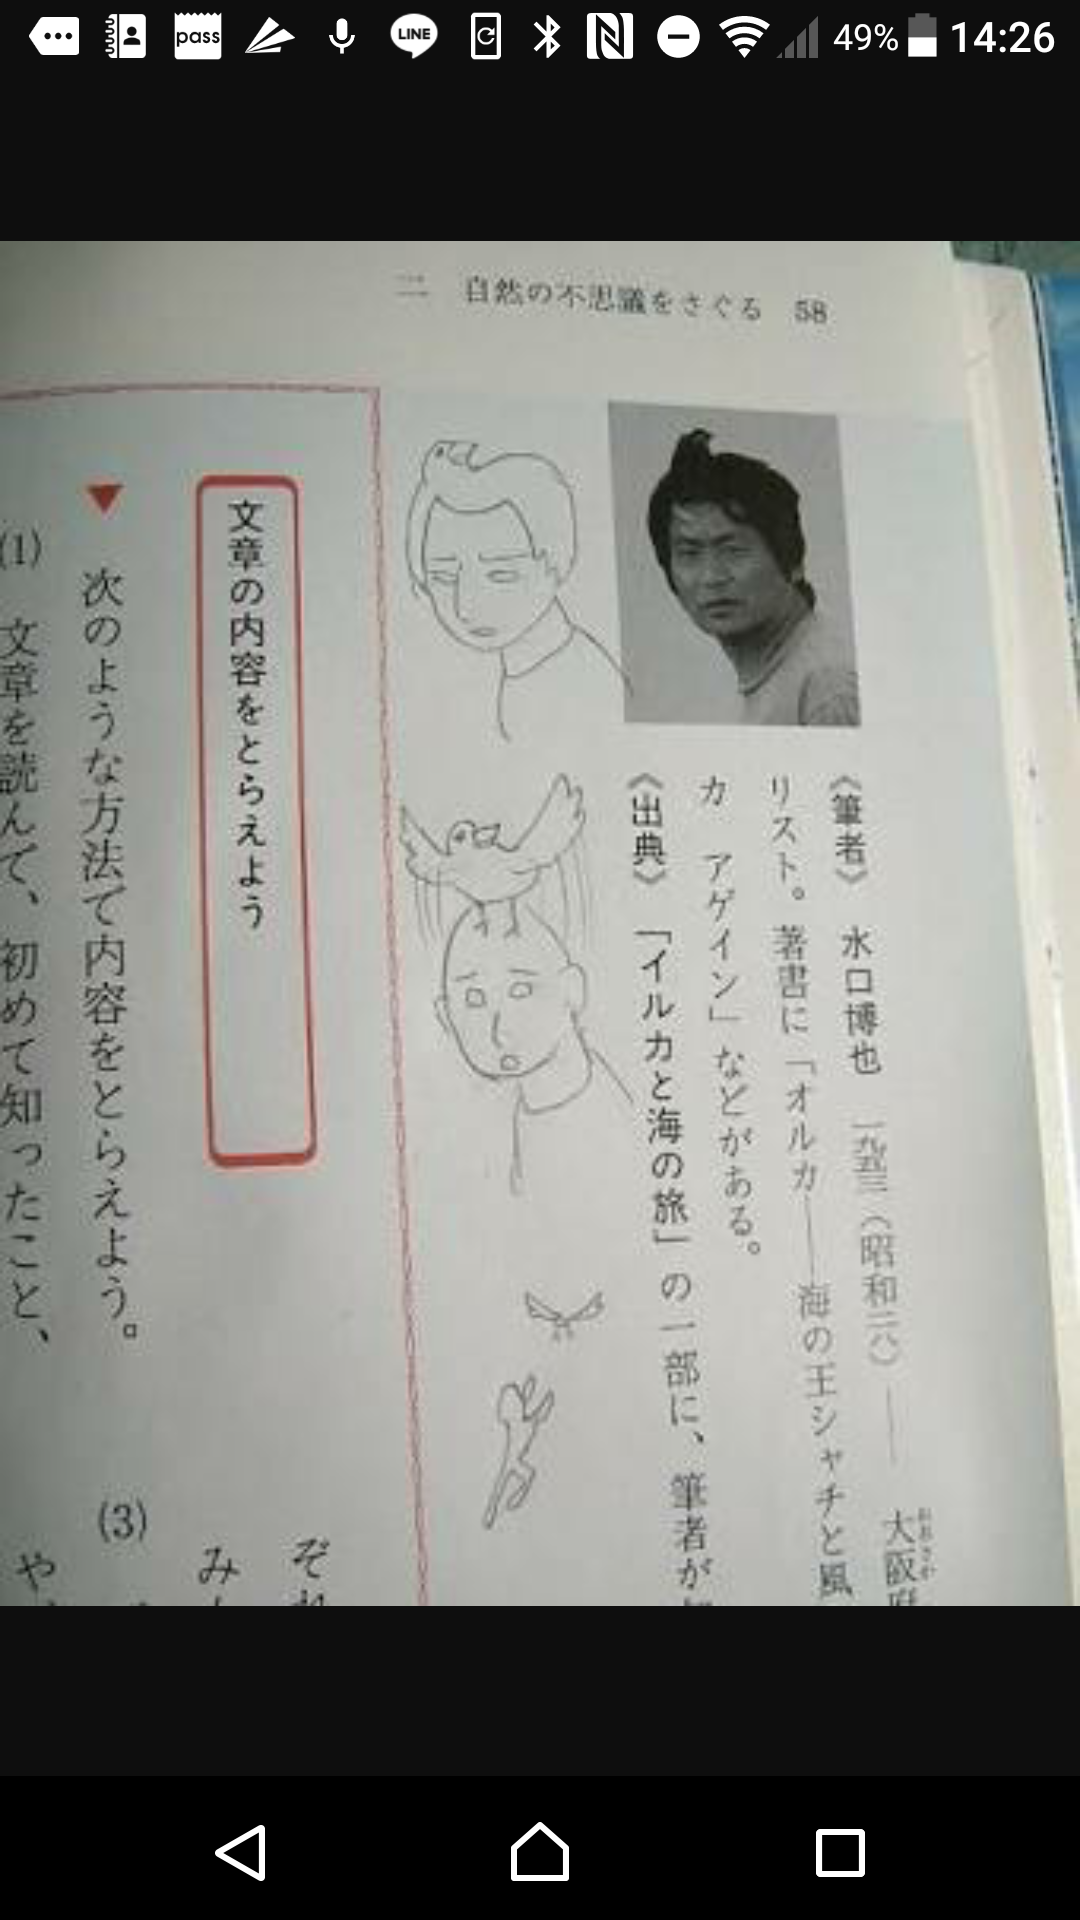 pass
LINE
49%
14:26
二 自然の不思議をさぐる 58
《筆者》 水口博也 一九五三(昭和二八)―― 大阪府
リスト。著書に「オルカ――海の王シャチと風
カ アゲイン」などがある。
《出典》 「イルカと海の旅」の一部に、筆者が
文章の内容をとらえよう
▼ 次のような方法で内容をとらえよう。
(1) 文章を読んで、初めて知ったこと、
(3)